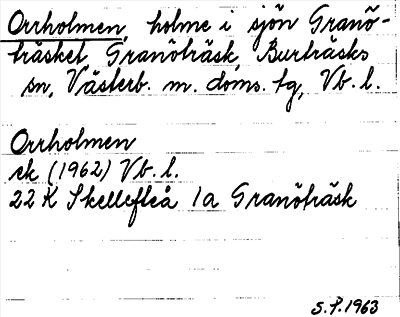 Orrholmen, holme i sjön Granö-
träsket, Granöträsk, Burträsks
sn, Västerb. m. doms. tg, Vb. l.
Orrholmen
ek (1962) Vb. l.
22 K Skellefteå 1a Granöträsk
S.P. 1963